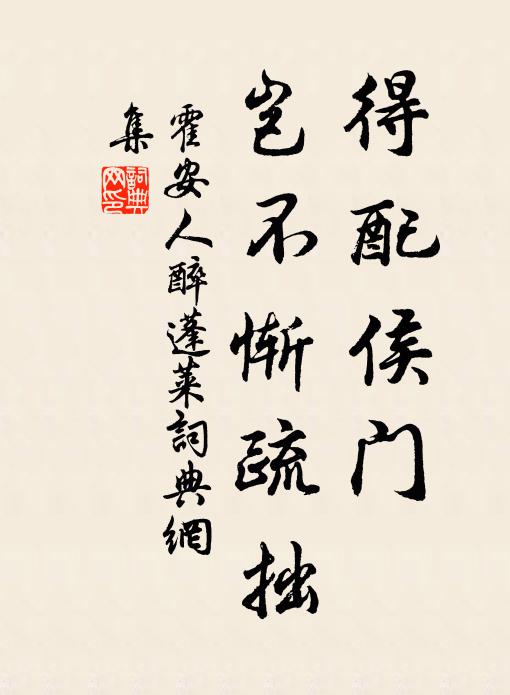 得配侯门
岂不惭疏拙
霍安人醉蓬莱詞典網
集
詞典网印